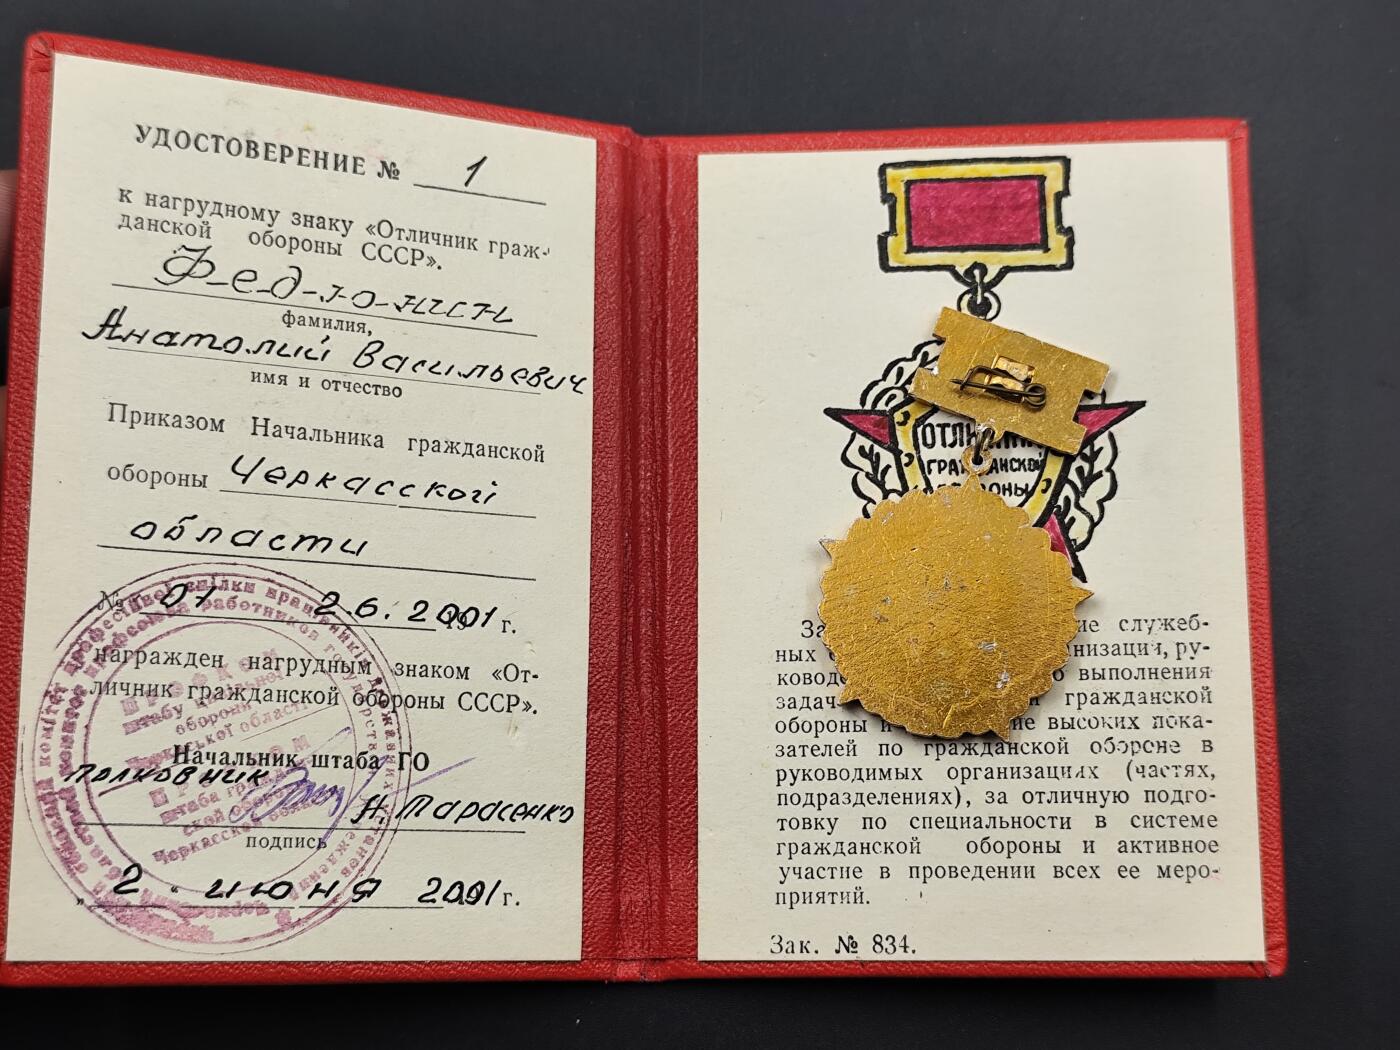 УДОСТОВЕРЕНИЕ № 1
к нагрудному знаку «Отличник граж-
данской обороны СССР».
Ф-е-д-ю-нин
фамилия,
Анатолий Васильевич
имя и отчество
Приказом Начальника гражданской
обороны Черкасской
области
№ 01 2.6.2001 г.
награжден нагрудным знаком «От-
личник гражданской обороны СССР».
Начальник штаба ГО
полковник Н. Тарасенко
подпись
„ 2 “ июня 2001 г.
ОТЛИЧНИК
ГРАЖДАНСКОЙ
ОБОРОНЫ
За служеб-
ных ру-
выполнения
гражданской
обороны и высоких пока-
зателей по гражданской обороне в
руководимых организациях (частях,
подразделениях), за отличную подго-
товку по специальности в системе
гражданской обороны и активное
участие в проведении всех ее меро-
приятий.
Зак. № 834.